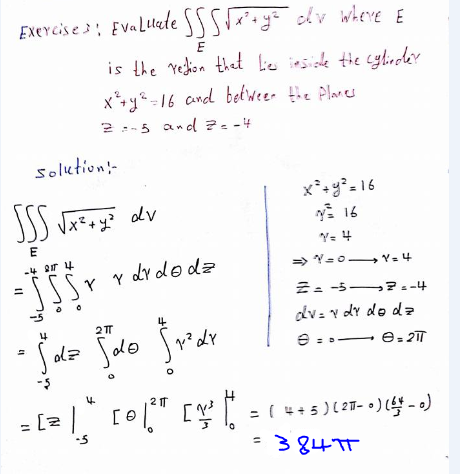 Exercise 3: Evaluate ∫∫∫ √x²+y² dv where E
E
is the region that lies inside the cylinder
x²+y²=16 and between the planes
z=-5 and z=-4
Solution:-
∫∫∫ √x²+y² dv
E
= ∫₋₅⁻⁴ ∫₀²π ∫₀⁴ r r dr dθ dz
= ∫₋₅⁴ dz ∫₀²π dθ ∫₀⁴ r² dr
= [z|₋₅⁴ [θ|₀²π [r³/3|₀⁴ = (4+5)(2π-0)(64/3-0)
= 384π
x²+y²=16
r²=16
r=4
⇒ r=0 → r=4
z=-5 → z=-4
dv=r dr dθ dz
θ=0 → θ=2π